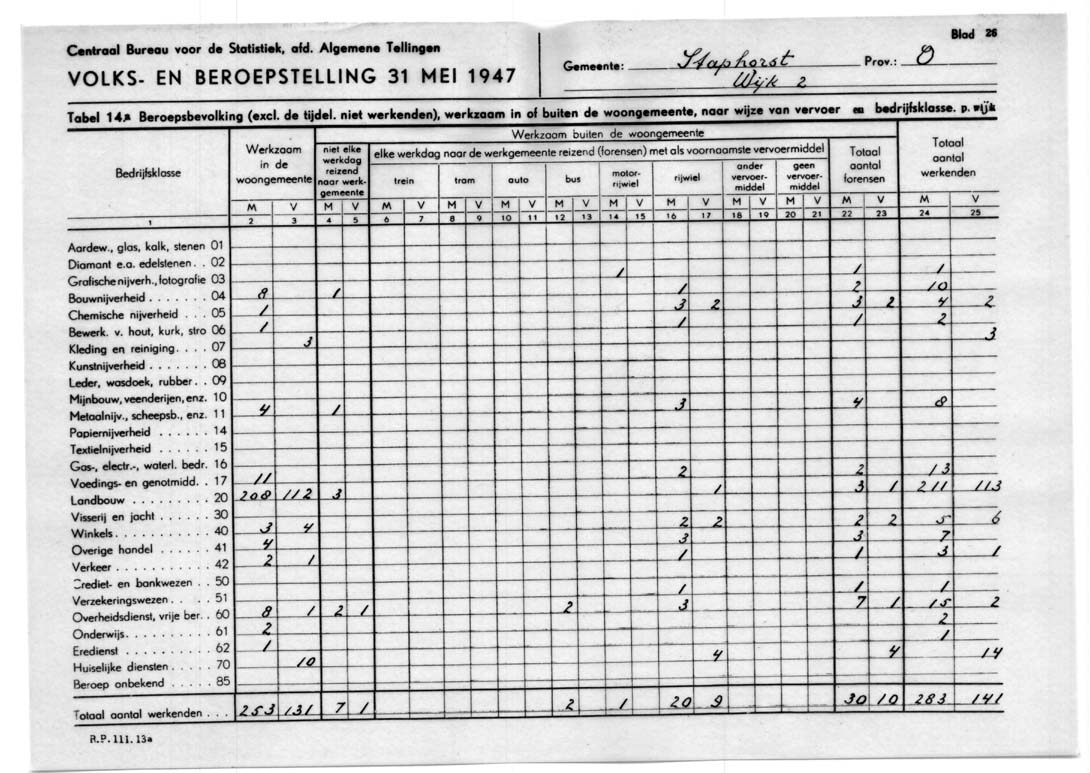 Centraal Bureau voor de Statistiek, afd. Algemene Tellingen
VOLKS- EN BEROEPSTELLING 31 MEI 1947
Gemeente: Staphorst Prov.: O
Wijk 2
Blad 26
Tabel 14.a Beroepsbevolking (excl. de tijdel. niet werkenden), werkzaam in of buiten de woongemeente, naar wijze van vervoer en bedrijfsklasse. p. wijk
Bedrijfsklasse
Werkzaam in de woongemeente
Werkzaam buiten de woongemeente
niet elke werkdag reizend naar werk-gemeente
elke werkdag naar de werkgemeente reizend (forensen) met als voornaamste vervoermiddel
trein tram auto bus motor-rijwiel rijwiel ander vervoer-middel geen vervoer-middel
Totaal aantal forensen
Totaal aantal werkenden
M V M V M V M V M V M V M V M V M V M V M V M V
1 2 3 4 5 6 7 8 9 10 11 12 13 14 15 16 17 18 19 20 21 22 23 24 25
Aardew., glas, kalk, stenen 01
Diamant e.a. edelstenen . . 02
Grafische nijverh., fotografie 03 1 1 1
Bouwnijverheid . . . . . . . 04 8 1 1 2 10
Chemische nijverheid . . . 05 1 3 2 3 2 4 2
Bewerk. v. hout, kurk, stro 06 1 1 1 2
Kleding en reiniging . . . . 07 3 3
Kunstnijverheid . . . . . . . 08
Leder, wasdoek, rubber . . 09
Mijnbouw, veenderijen, enz. 10
Metaalnijv., scheepsb., enz. 11 4 1 3 4 8
Papiernijverheid . . . . . 14
Textielnijverheid . . . . . 15
Gas-, electr.-, waterl. bedr. 16
Voedings- en genotmidd. . 17 11 2 2 13
Landbouw . . . . . . . . 20 208 112 3 1 3 1 211 113
Visserij en jacht . . . . . . 30
Winkels . . . . . . . . . . 40 3 4 2 2 2 2 5 6
Overige handel . . . . . . 41 4 3 3 7
Verkeer . . . . . . . . . . 42 2 1 1 1 3 1
Crediet- en bankwezen . . 50
Verzekeringswezen . . . . . 51 1 1 1
Overheidsdienst, vrije ber. . 60 8 1 2 1 2 3 7 1 15 2
Onderwijs . . . . . . . . . 61 2 2
Eredienst . . . . . . . . . 62 1 1
Huiselijke diensten . . . . . 70 10 4 4 14
Beroep onbekend . . . . . 85
Totaal aantal werkenden . . . 253 131 7 1 2 1 20 9 30 10 283 141
R.P. 111. 13a